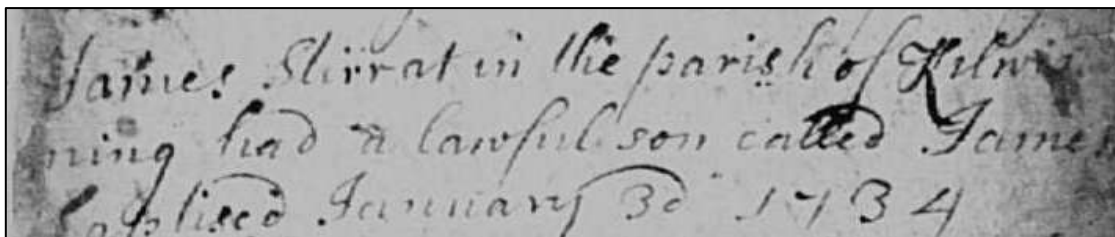 James Stirrat in the parish of Kilwin
ning had a lawful son called James
baptised January 3d 1734